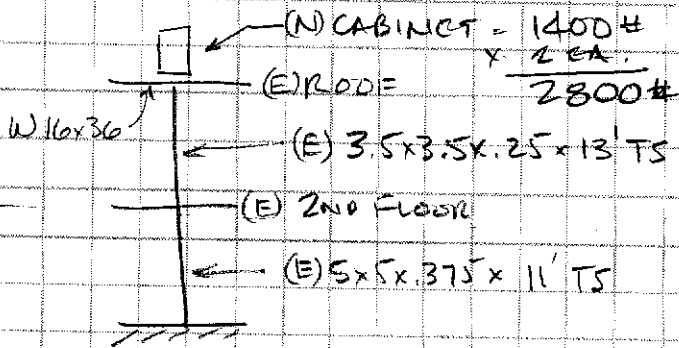 (N) CABINET = 1400#
x 2 EA.
(E) ROOF 2800#
W16x36
(E) 3.5x3.5x.25x13' TS
(E) 2ND FLOOR
(E) 5x5x.375x11' TS